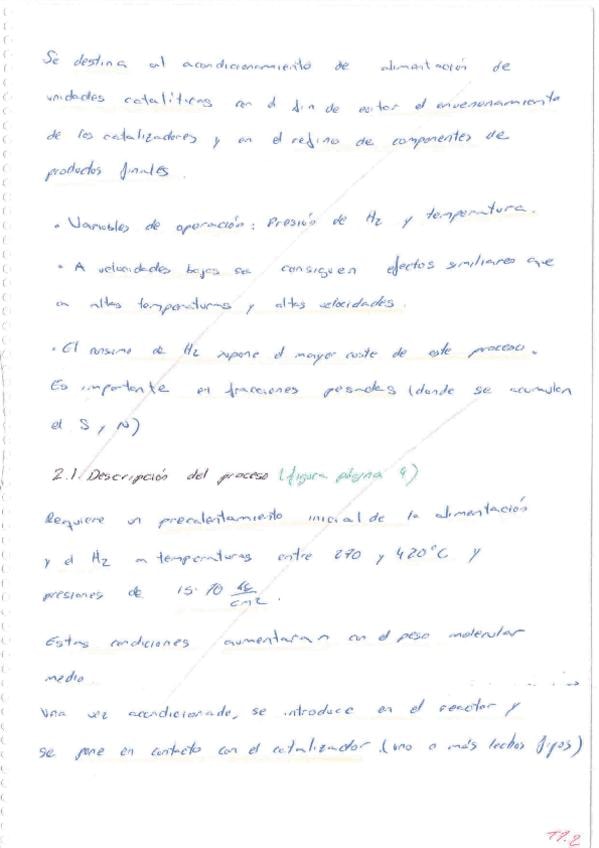 Se destina al acondicionamiento de alimentación de
unidades catalíticas con el fin de evitar el envenenamiento
de los catalizadores y en el refino de componentes de
productos finales.
• Variables de operación: Presión de H2 y temperatura.
• A velocidades bajas se consiguen efectos similiares que
a altas temperaturas y altas velocidades.
• El consumo de H2 supone el mayor coste de este proceso.
Es importante en fracciones pesadas (donde se acumulan
el S y N)
2.1. Descripción del proceso (figura página 9)
Requiere un precalentamiento inicial de la alimentación
y el H2 a temperaturas entre 270 y 420ºC y
presiones de 15-70 kg/cm2.
Estas condiciones aumentaran con el peso molecular
medio.
Una vez acondicionado, se introduce en el reactor y
se pone en contacto con el catalizador. (uno o más lechos fijos)
T7.2